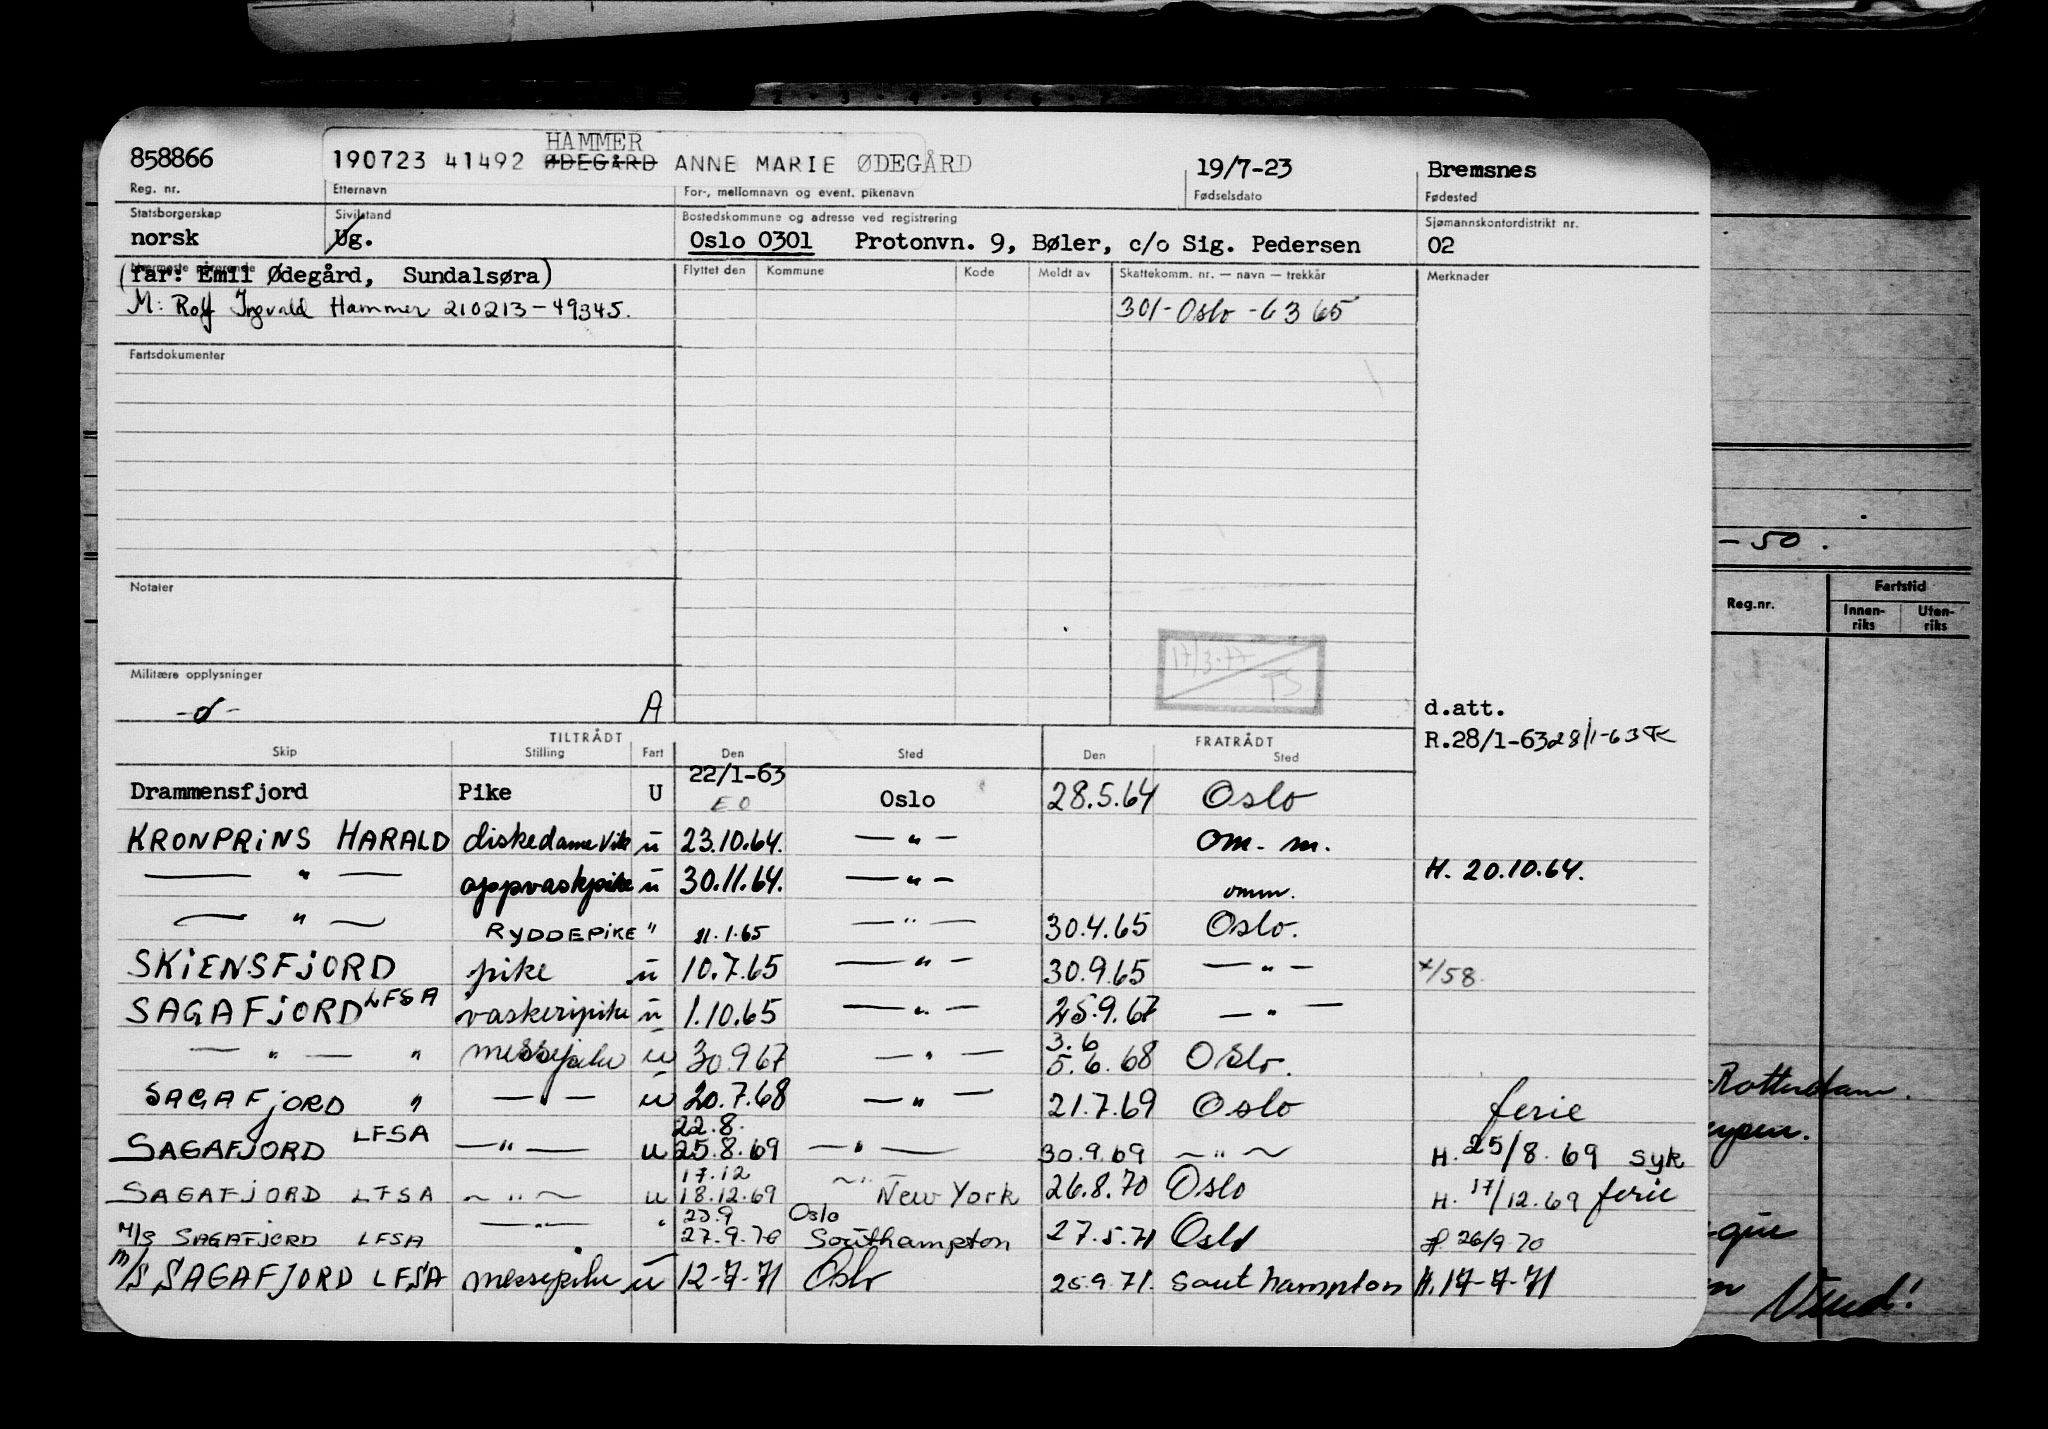 HAMMER
858866 190723 41492 ØDEGÅRD ANNE MARIE ØDEGÅRD 19/7-23 Bremsnes
Reg. nr. Etternavn For-, mellomnavn og event. pikenavn Fødselsdato Fødested
Statsborgerskap Sivilstand Bostedskommune og adresse ved registrering Sjømannskontordistrikt nr.
norsk Ug. Oslo 0301 Protonvn. 9, Bøler, c/o Sig. Pedersen 02
Nærmeste pårørende Flyttet den Kommune Kode Meldt av Skattekomm. nr. — navn — trekkår Merknader
(far: Emil Ødegård, Sundalsøra)
M: Rolf Ingvald Hammer 210213-49345. 301-Oslo-63 65
Fartsdokumenter
- 50 .
Notater
Reg.nr. Fartstid
Innen-riks Uten-riks
17/3-77 TS
Militære opplysninger
-o- A d.att.
TILTRÅDT FRATRÅDT R.28/1-63 28/1-63
Skip Stilling Fart Den Sted Den Sted
22/1-63
Drammensfjord Pike U EO Oslo 28.5.64 Oslo
KRONPRINS HARALD diskedame vik u 23.10.64. —"— om. m.
— " — oppvaskpike u 30.11.64. —"— omm. H. 20.10.64.
— " — RYDDEPIKE " 11.1.65 —"— 30.4.65 Oslo.
SKIENSFJORD pike u 10.7.65 —"— 30.9.65 —"— x/58.
SAGAFJORD LFSA vaskeripike u 1.10.65 —"— 25.9.67 —"—
3.6
— " — " messepike u 30.9.67 —"— 5.6.68 Oslo.
SAGAFJORD " —"— u 20.7.68 —"— 21.7.69 Oslo ferie
22.8.
SAGAFJORD LFSA —"— u 25.8.69 —"— 30.9.69 —"— H. 25/8.69 syk
17.12
SAGAFJORD LFSA —"— u 18.12.69 —"— New York 26.8.70 Oslo H. 17/12.69 ferie
23.9 Oslo
M/S SAGAFJORD LFSA —"— " 27.9.70 Southampton 27.5.71 Oslo H. 26/9 70
M/S SAGAFJORD LFSA messepike u 12-7-71 Oslo 25.9.71. Southampton H. 17-7-71
Rotterdam.